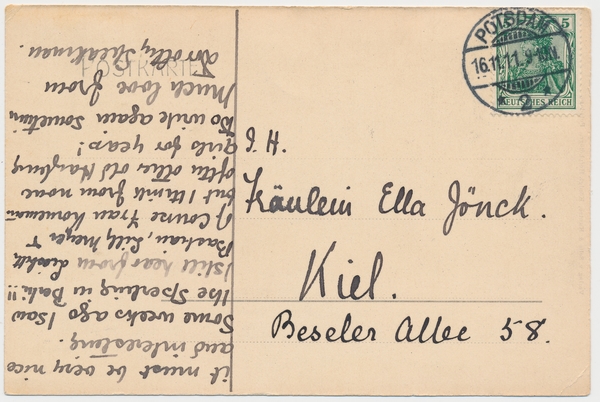 POSTKARTE
it must be very nice
and interesting.
Some weeks ago I saw
Ilse Sperling in Berlin!!
I still hear from
Lilly Meyer &
of course Frau
but I think from none
often other old Harzburg
girls for years!
Do write again sometime
Much love from
Dorothy Speakman.
POTSDAM
16.11.11. 9-10N.
2
5
DEUTSCHES REICH
I. H.
Fräulein Ella Jönck.
Kiel.
Beseler Allee 58.